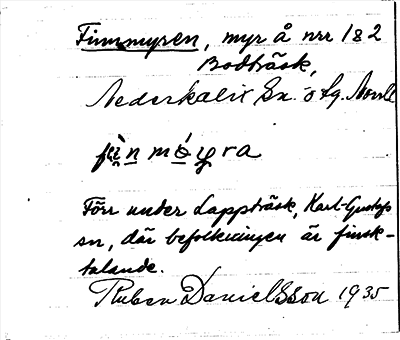 Finnmyren, myr å nrr 1 & 2
Bodträsk,
Nederkalix Sn. o tg. Norrb
Förr under Lappträsk, Karl-Gustafs
sn, där befolkningen är finsk-
talande.
Ruben Danielsson 1935